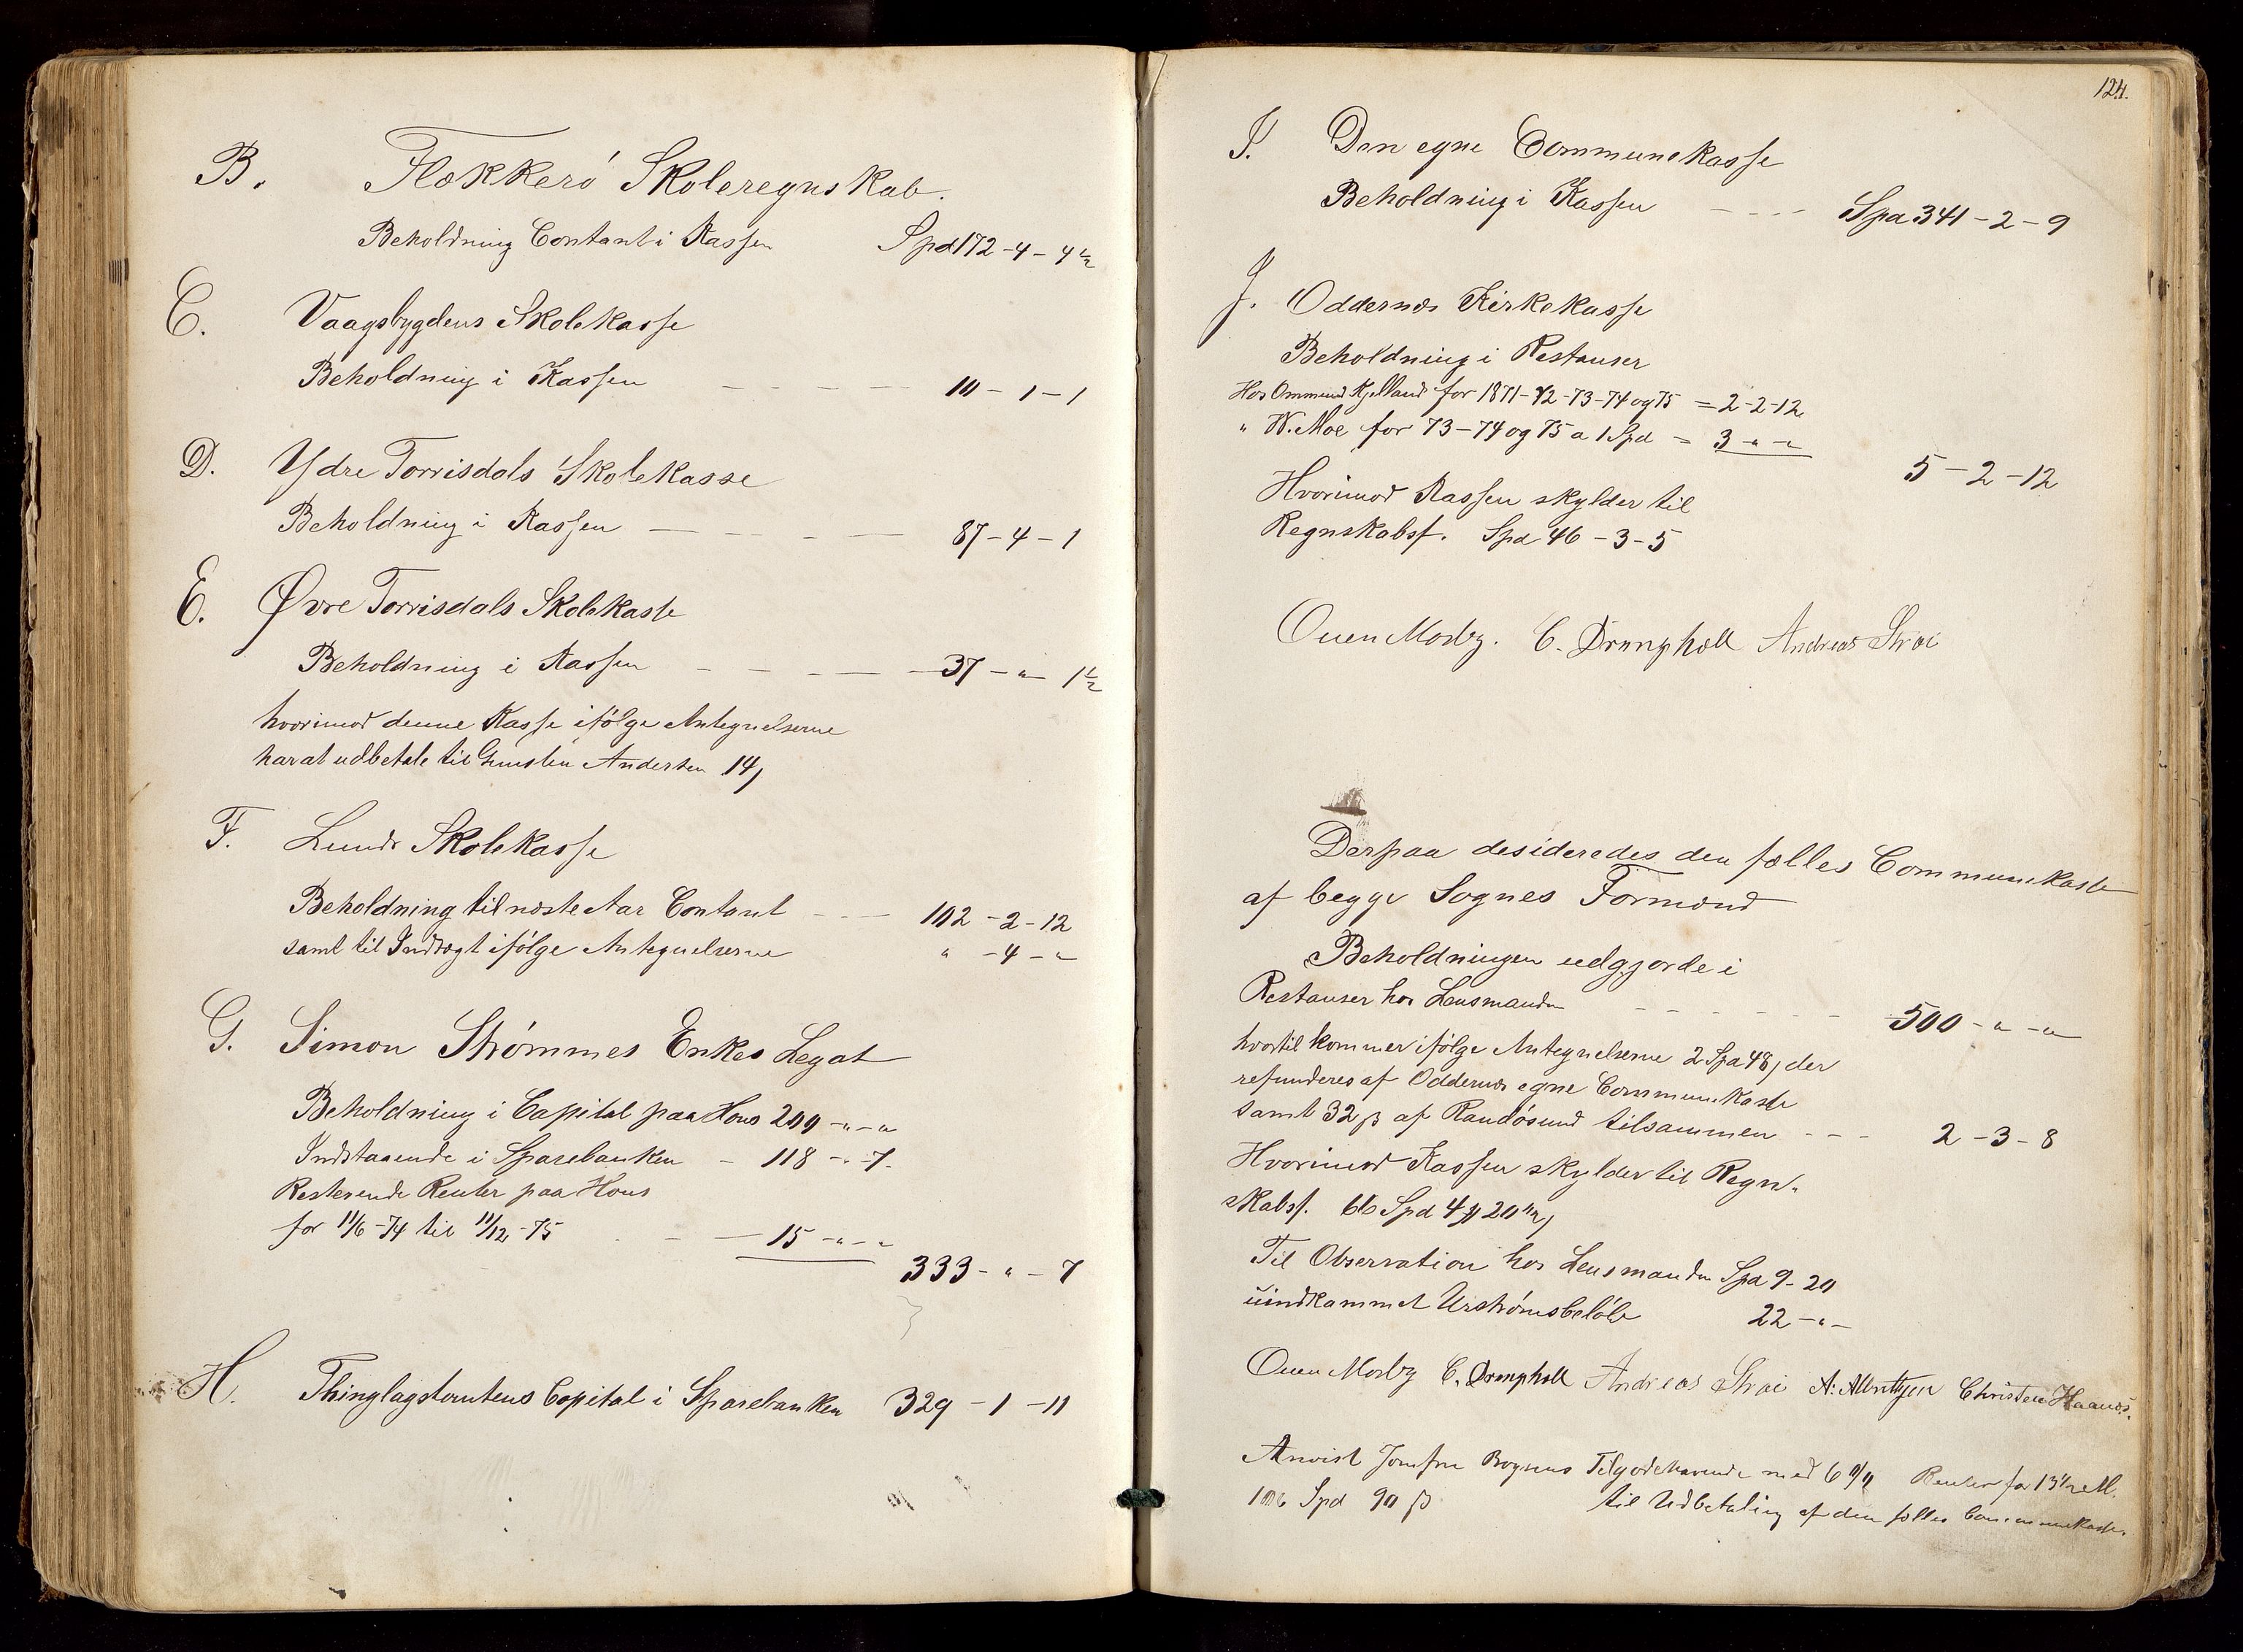 B. Flekkerø Skoleregnskab.
Beholdning Contant i Kassen Spd 172-4-4½
C. Vaagsbygdens Skolekasse
Beholdning i Kassen - - - - 10-1-1
D. Ydre Torrisdals Skolekasse
Beholdning i Kassen - - - - 87-4-1
E. Øvre Torrisdals Skolekasse
Beholdning i Kassen - - - - 37-"-1½
hvorimod denne Kasse ifølge Antegnelserne
har at udbetale til Gunsten Andersen 14,
F. Lunds Skolekasse
Beholdning til næste Aar Contant - - 102-2-12
samt til Indtægt ifølge Antegnelserne "-4-"
G. Simon Strømmes Enkes Legat
Beholdning i Capital paa Hous 200-"-"
Indstaaende i Sparebanken - 118-"-7.
Resterende Renter paa Hous
for 11/6-74 til 11/12-75 - - 15-"-"
333-"-7
H. Thinglagstomtens Capital i Sparebanken 329-1-11
124.
I. Den egne Communekasse
Beholdning i Kassen - - - - Spd 341-2-9
J. Oddernes Kirkekasse
Beholdning i Restanser
Hos Ommund Kjelland for 1871-72-73-74 og 75 = 2-2-12
" W. Moe for 73-74 og 75 a 1 Spd = 3-"-"
5-2-12
Hvorimod Kassen skylder til
Regnskabsf. Spd 46-3-5
Ouen Mosby. C. Drangholt Andreas Strai
Derpaa desideredes den fælles Communekasse
af begge Sognes Formænd
Beholdningen udgjorde i
Restanser hos Lensmanden - - - - - - 500-"-"
hvortil kommer ifølge Antegnelserne 2 Spd 48, der
refunderes af Oddernes egne Communekasse
samt 32 β af Randøsund tilsammen - - - 2-3-8
Hvorimod Kassen skylder til Regn-
skabsf. 66 Spd 4 20½,
Til Observation hos Lensmanden Spd 9-20
uindkommet Beløb 22-"-
Ouen Mosby C. Drangholt Andreas Strai A: Albretsen Christen Haanes.
Anvist Jomfru Tilgodehavende med 6 0/0 Renter for 13½ M.
106 Spd 90 β til Udbetaling af den fælles Communekasse.